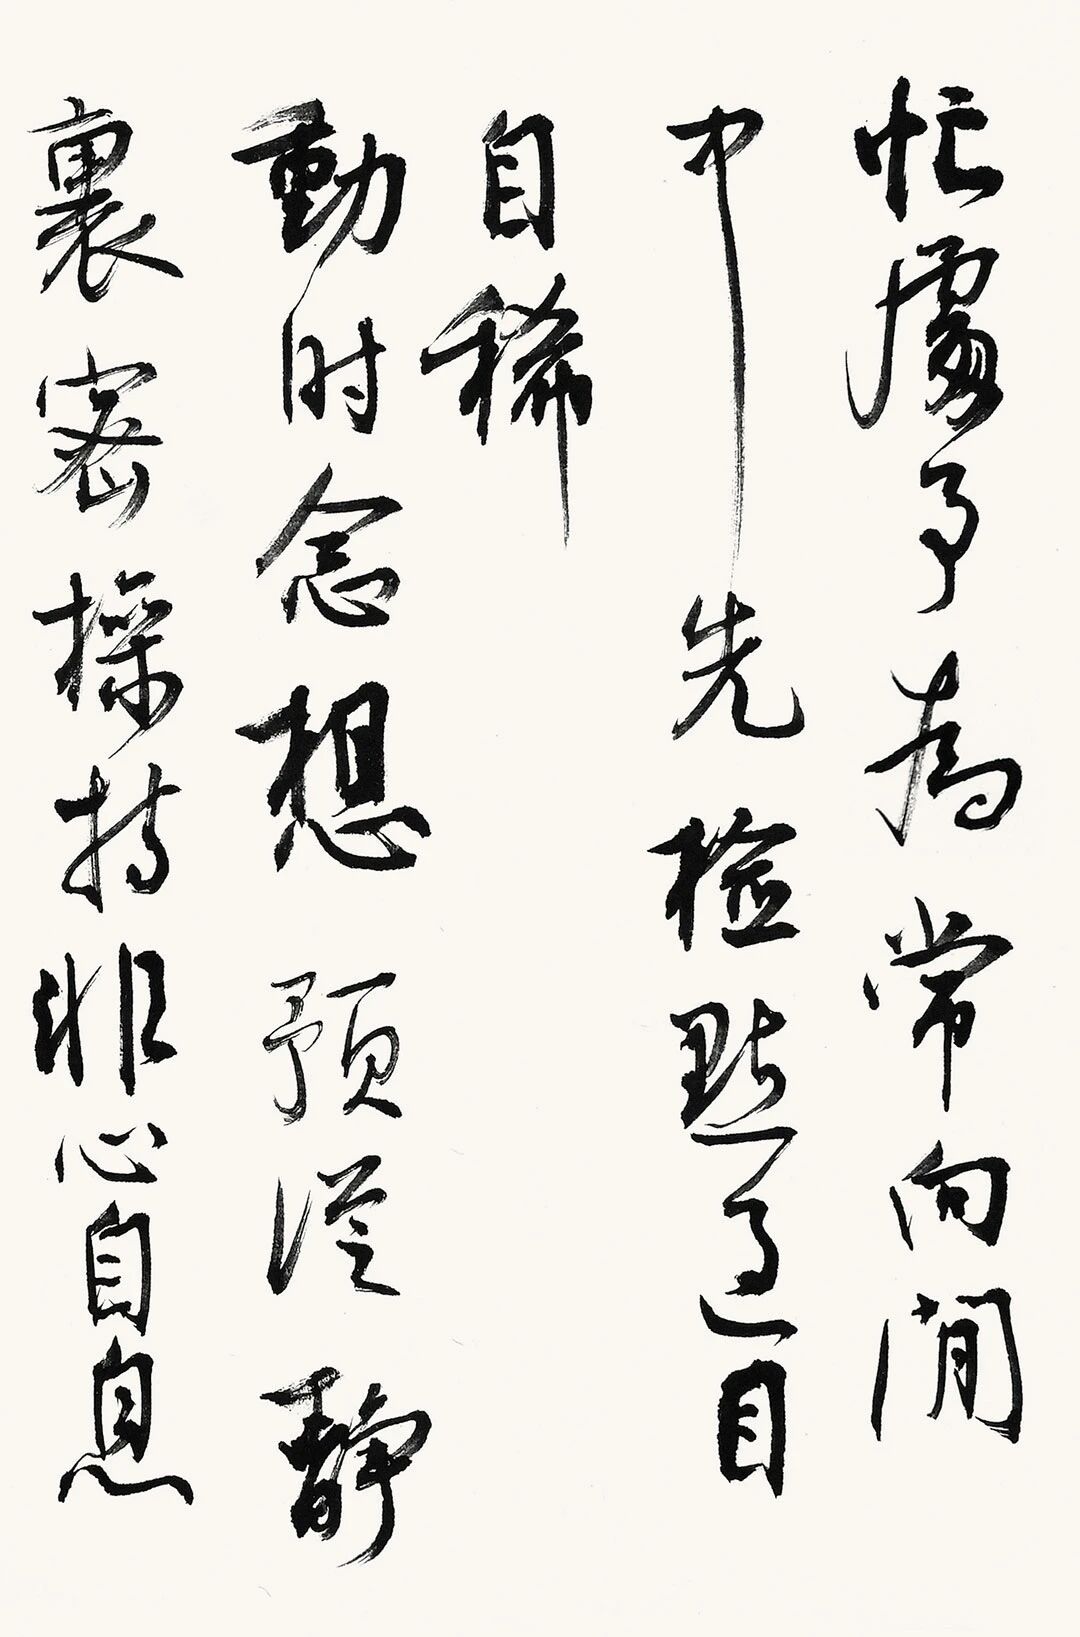 忙處事為常向閒
中先檢點過目
自稀
動时念想預從靜
裏密操持非心自息